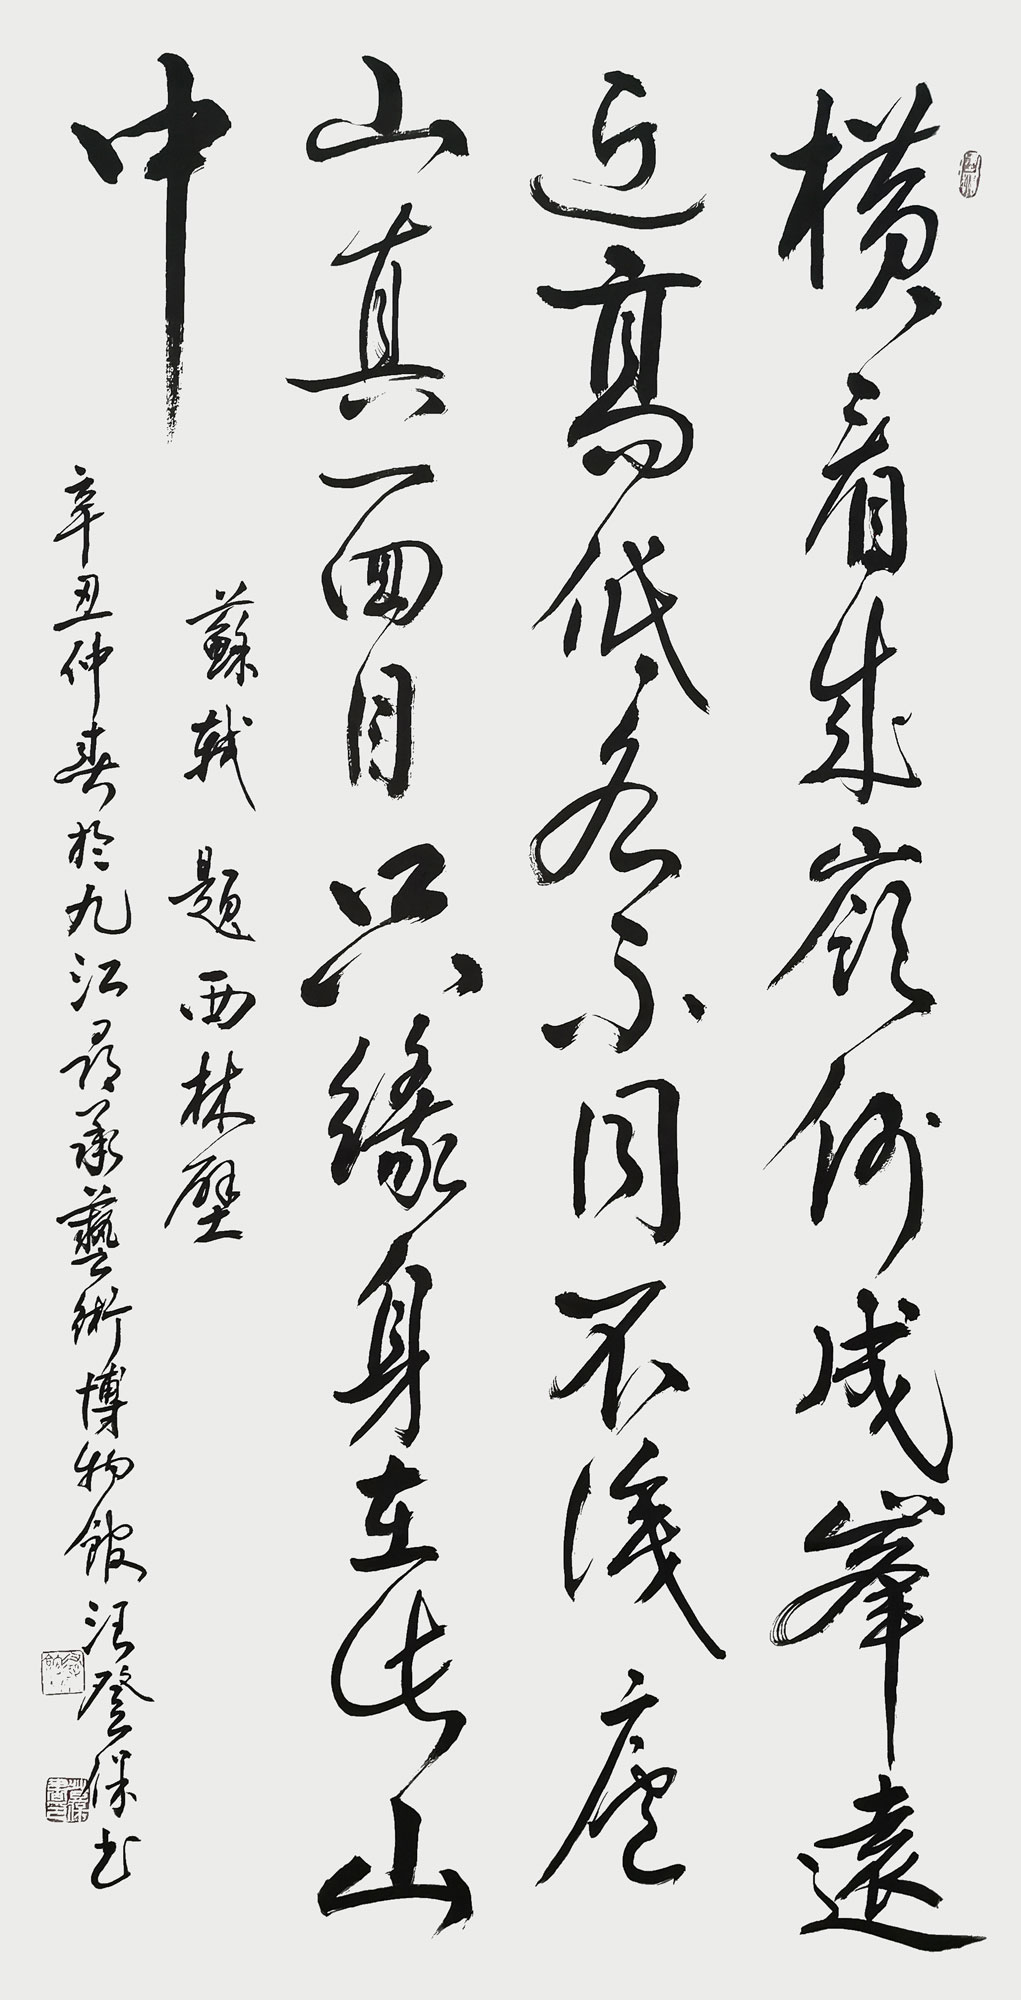 橫看成嶺側成峯遠
近高低各不同不識廬
山真面目只緣身在此山
中
蘇軾題西林壁
辛丑仲春於九江尋承藝術博物館汪登保書